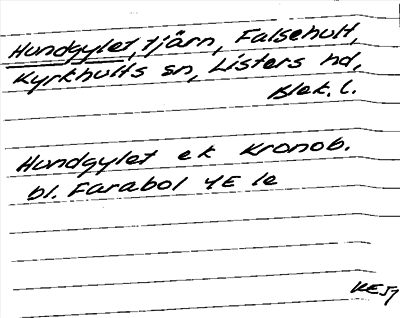 Hundgylet, tjärn, Falsehult,
Kyrkhults sn, Listers hd,
Blek. l.
Hundgylet ek Kronob.
bl. Farabol 4E 1e